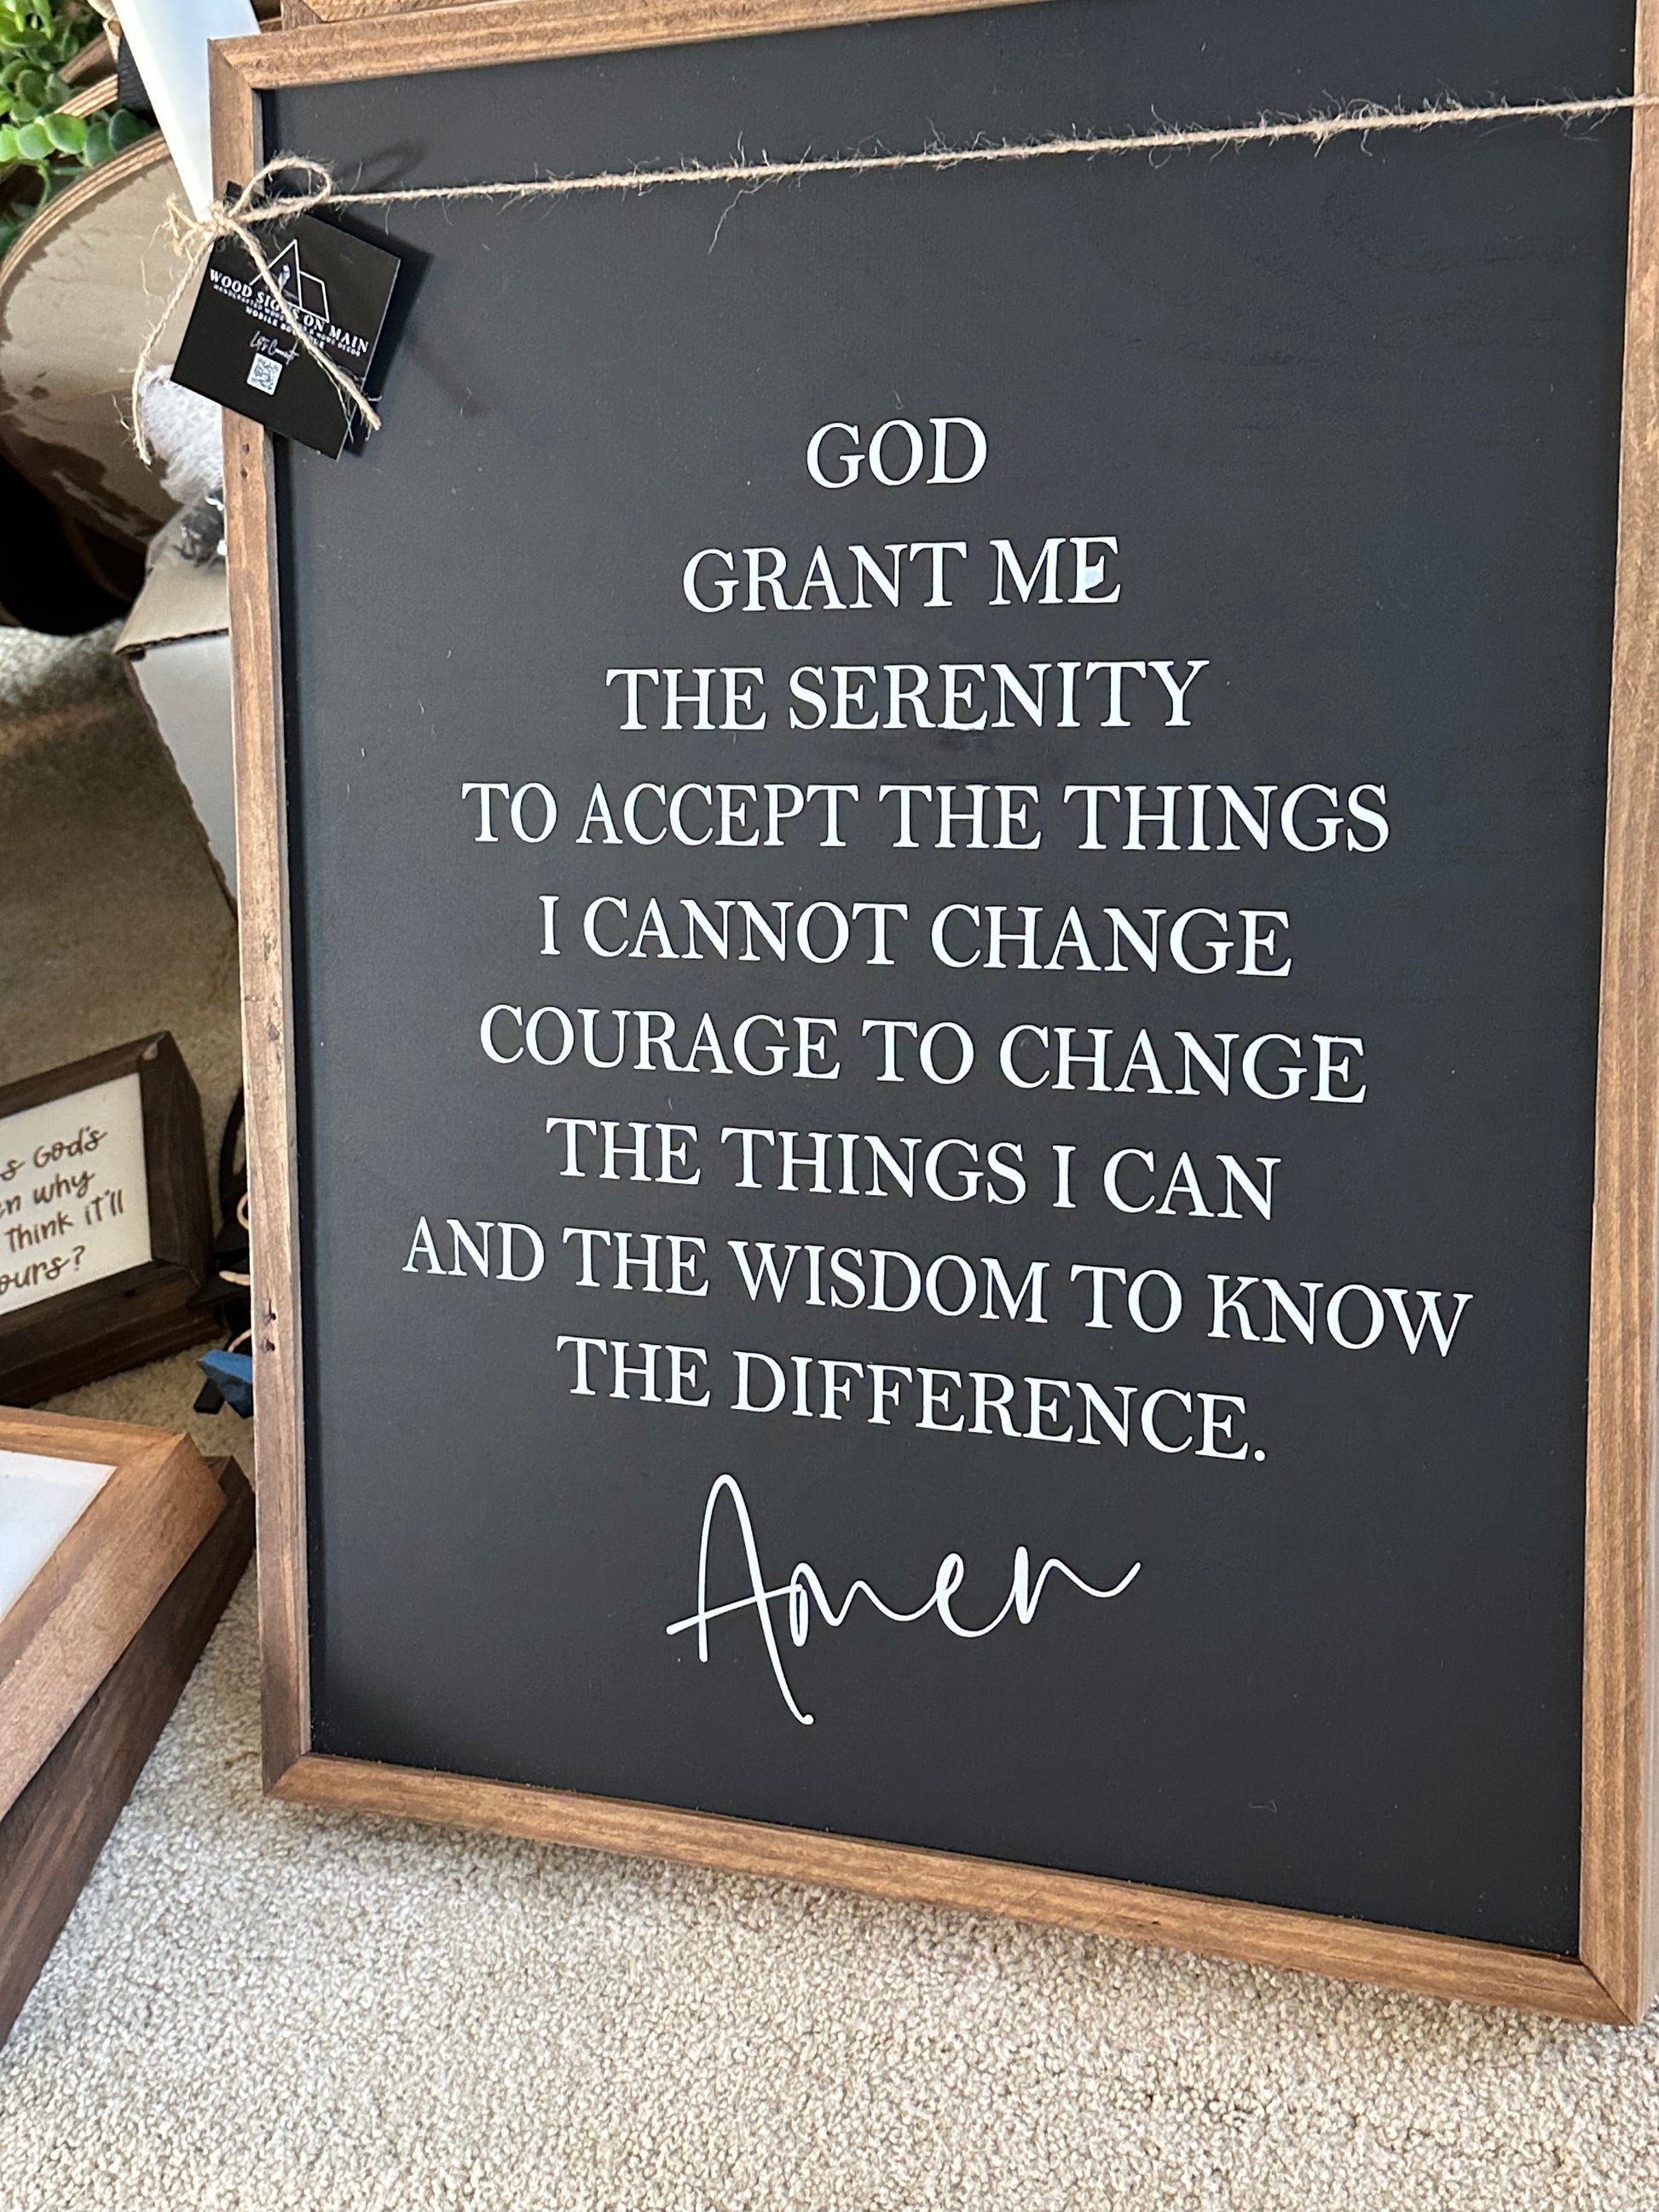 WOOD SIGNS ON MAIN
GOD
GRANT ME
THE SERENITY
TO ACCEPT THE THINGS
I CANNOT CHANGE
COURAGE TO CHANGE
THE THINGS I CAN
AND THE WISDOM TO KNOW
THE DIFFERENCE.
Amen
God's
why
Think it'll